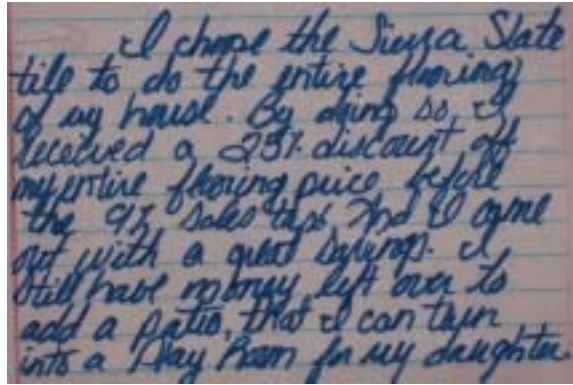 I chose the Sierra Slate
tile to do the entire flooring
of my house. By doing so, I
received a 25% discount off
my entire flooring price before
the 9% sales tax. And I came
out with a great savings. I
still have money left over to
add a patio, that I can turn
into a Play Room for my daughter.